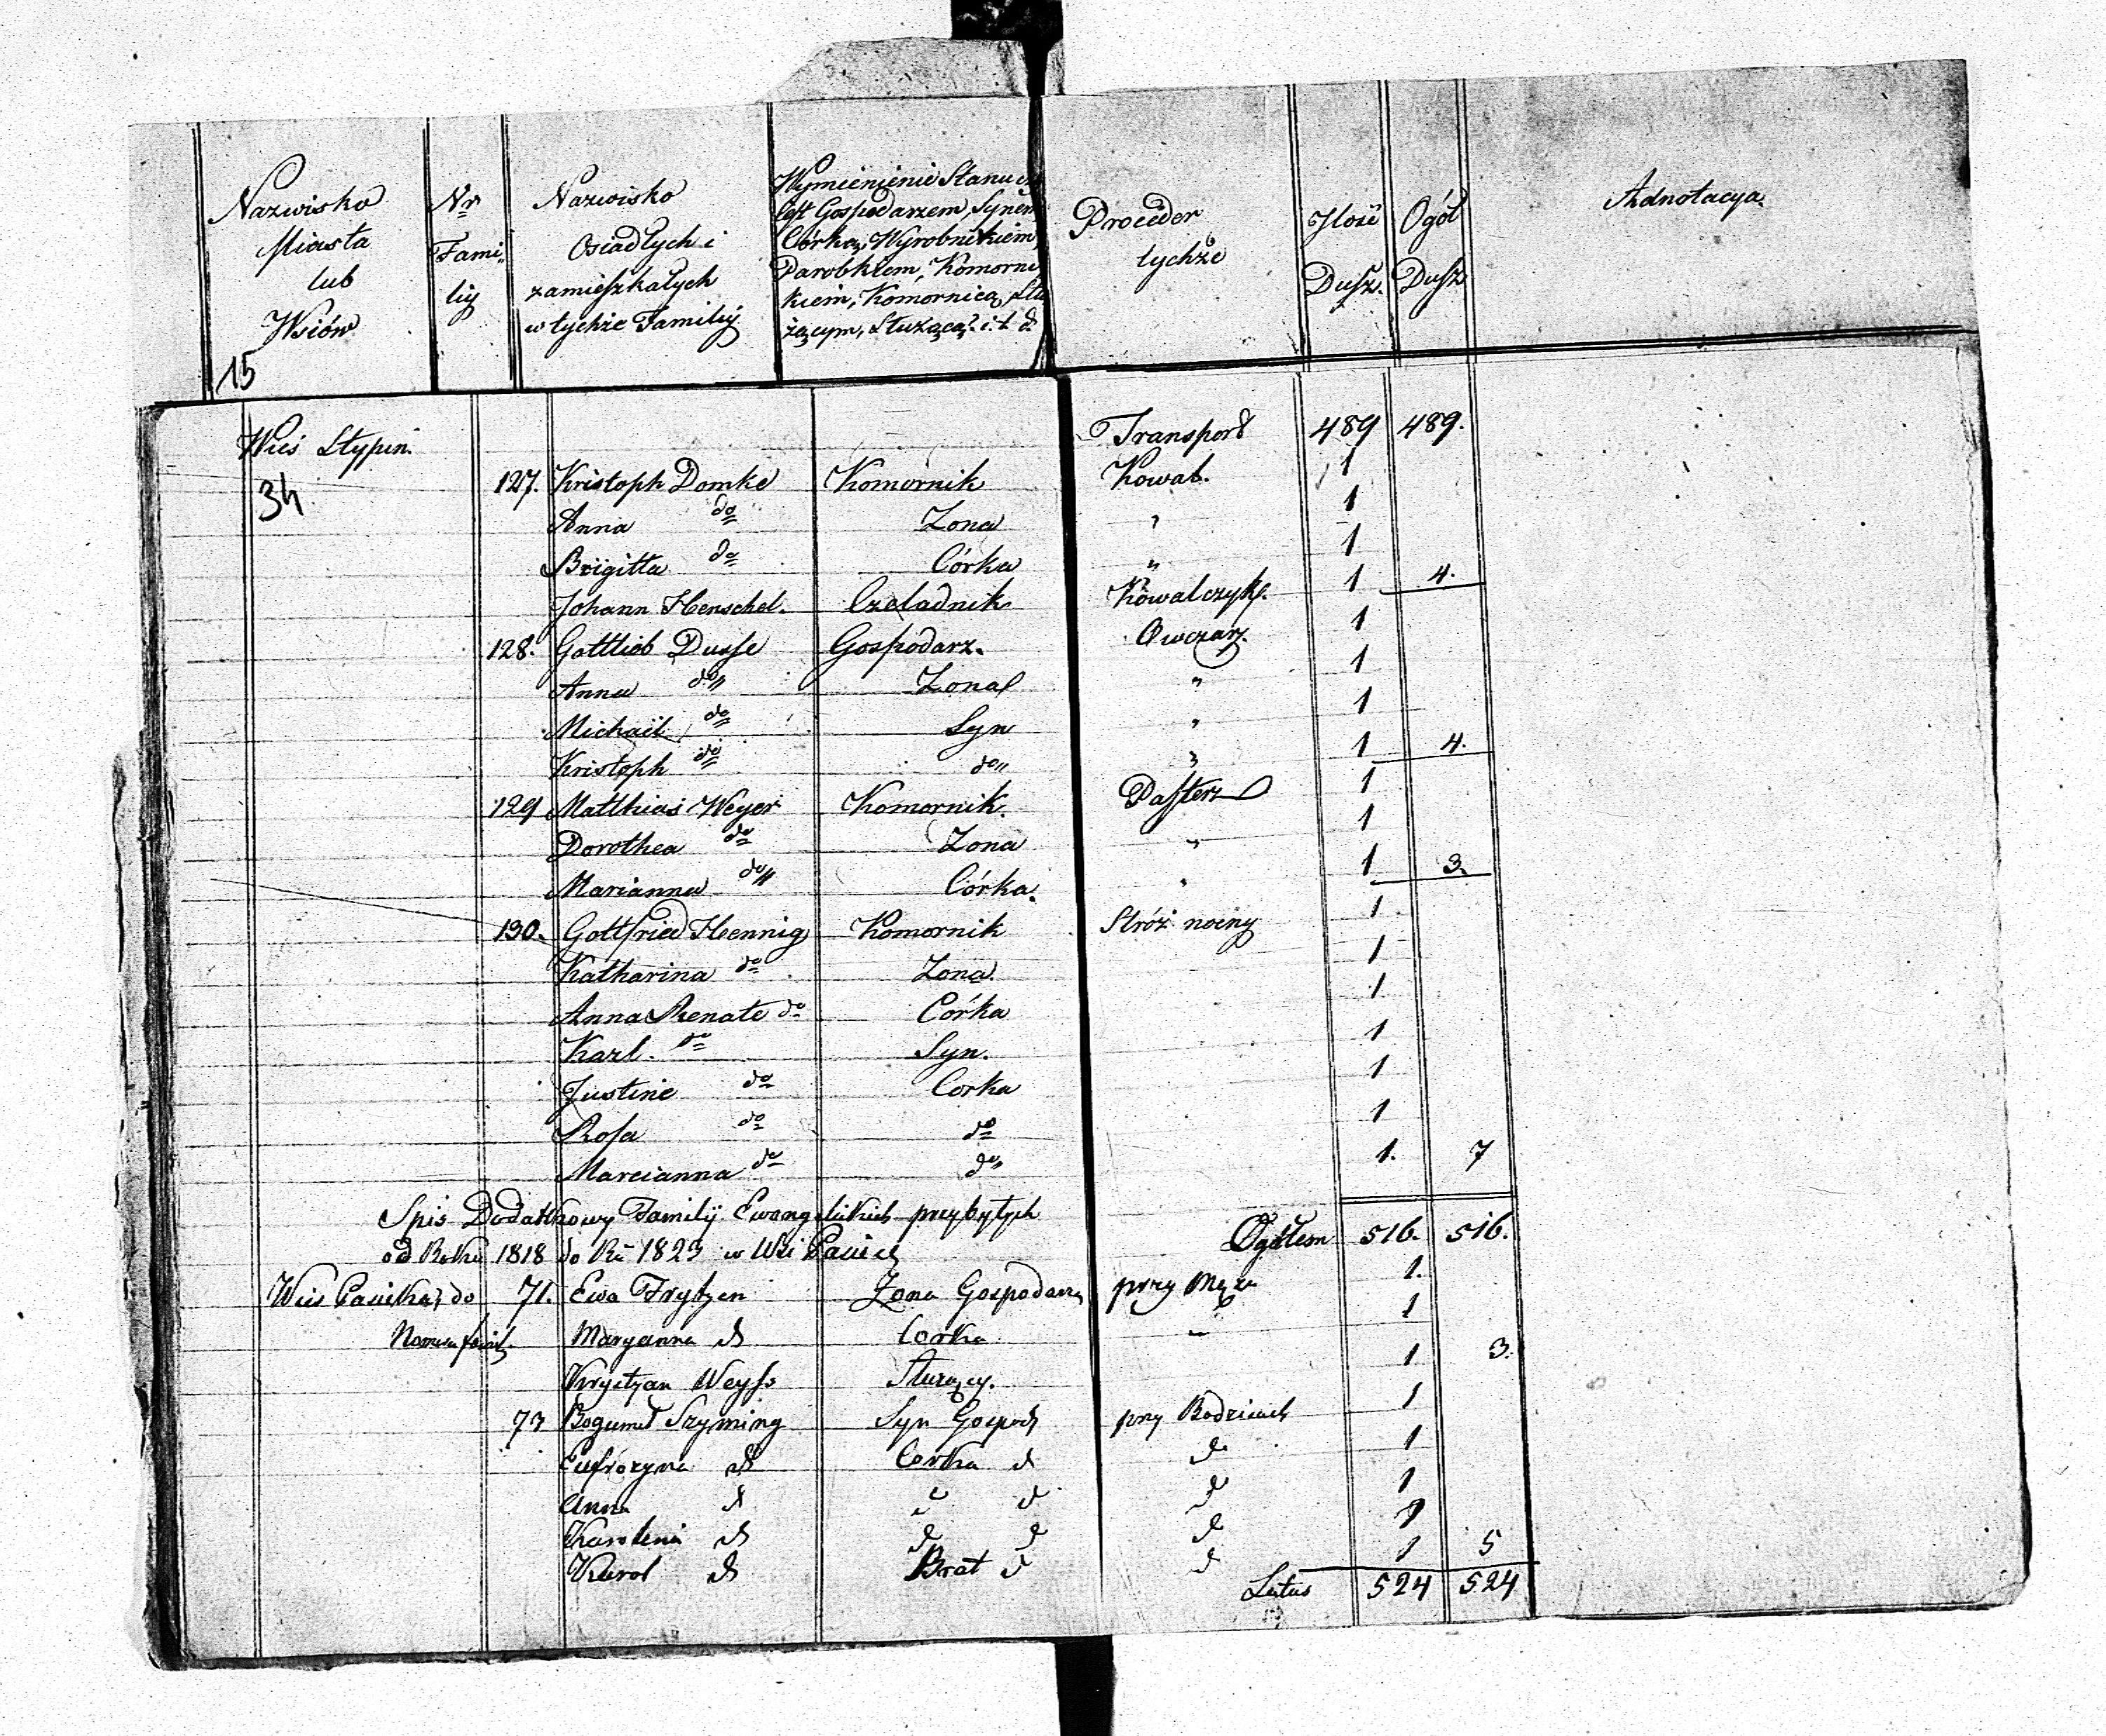 Nazwisko Miasta lub Wsiów
Nr Familij
Nazwisko Osiadłych i zamieszkałych w tychże Familij
Wymienienie Stanu czy
jest Gospodarzem, Synem
Córką, Wyrobnikiem,
Parobkiem, Komorni
kiem, Komornicą, Słu
żącym, Służącą? i. t. d.
Proceder tychże
Ilość Dusz.
Ogół Dusz
Adnotacya
15
Wieś Słypin. Transport 489 489.
34
127. Kristoph Domke Komornik Kowal. 1
Anna do Zona " 1
Brigitta do Córka " 1
Johann Henschel. Czeladnik Kowalczyk. 1 4.
128. Gottlieb Dusse Gospodarz. Owczarz. 1
Anna do Zona " 1
Michael do Syn " 1
Kristoph do do " 1 4.
129 Matthias Weyer Komornik. Pasterz 1
Dorothea do Zona " 1
Marianna do Córka. " 1 3.
130. Gottfried Hennig Komornik Stróż nocny 1
Katharina do Zona. 1
Anna Renate do Córka 1
Karl. do Syn. 1
Justine do Corka 1
Rosa do do 1
Marcianna do do 1. 7
Spis Dodatkowy Familij Ewangelickich przybytych Ogółem 516. 516.
od Roku 1818 do Ru 1823 w Wsi
Wieś do 71. Ewa Frytzen Zona Gospodarza przy Mężu 1.
Maryanna d Corka " 1
Krystyan Weyss Służący. 1 3.
73 Bogumił Szyming Syn Gospod przy Rodzicach 1
Eufrozyna d Corka d d 1
Anna d " d d 1
Karolina d d d d 1
Karol d Brat d d 1 5
Latus 524 524